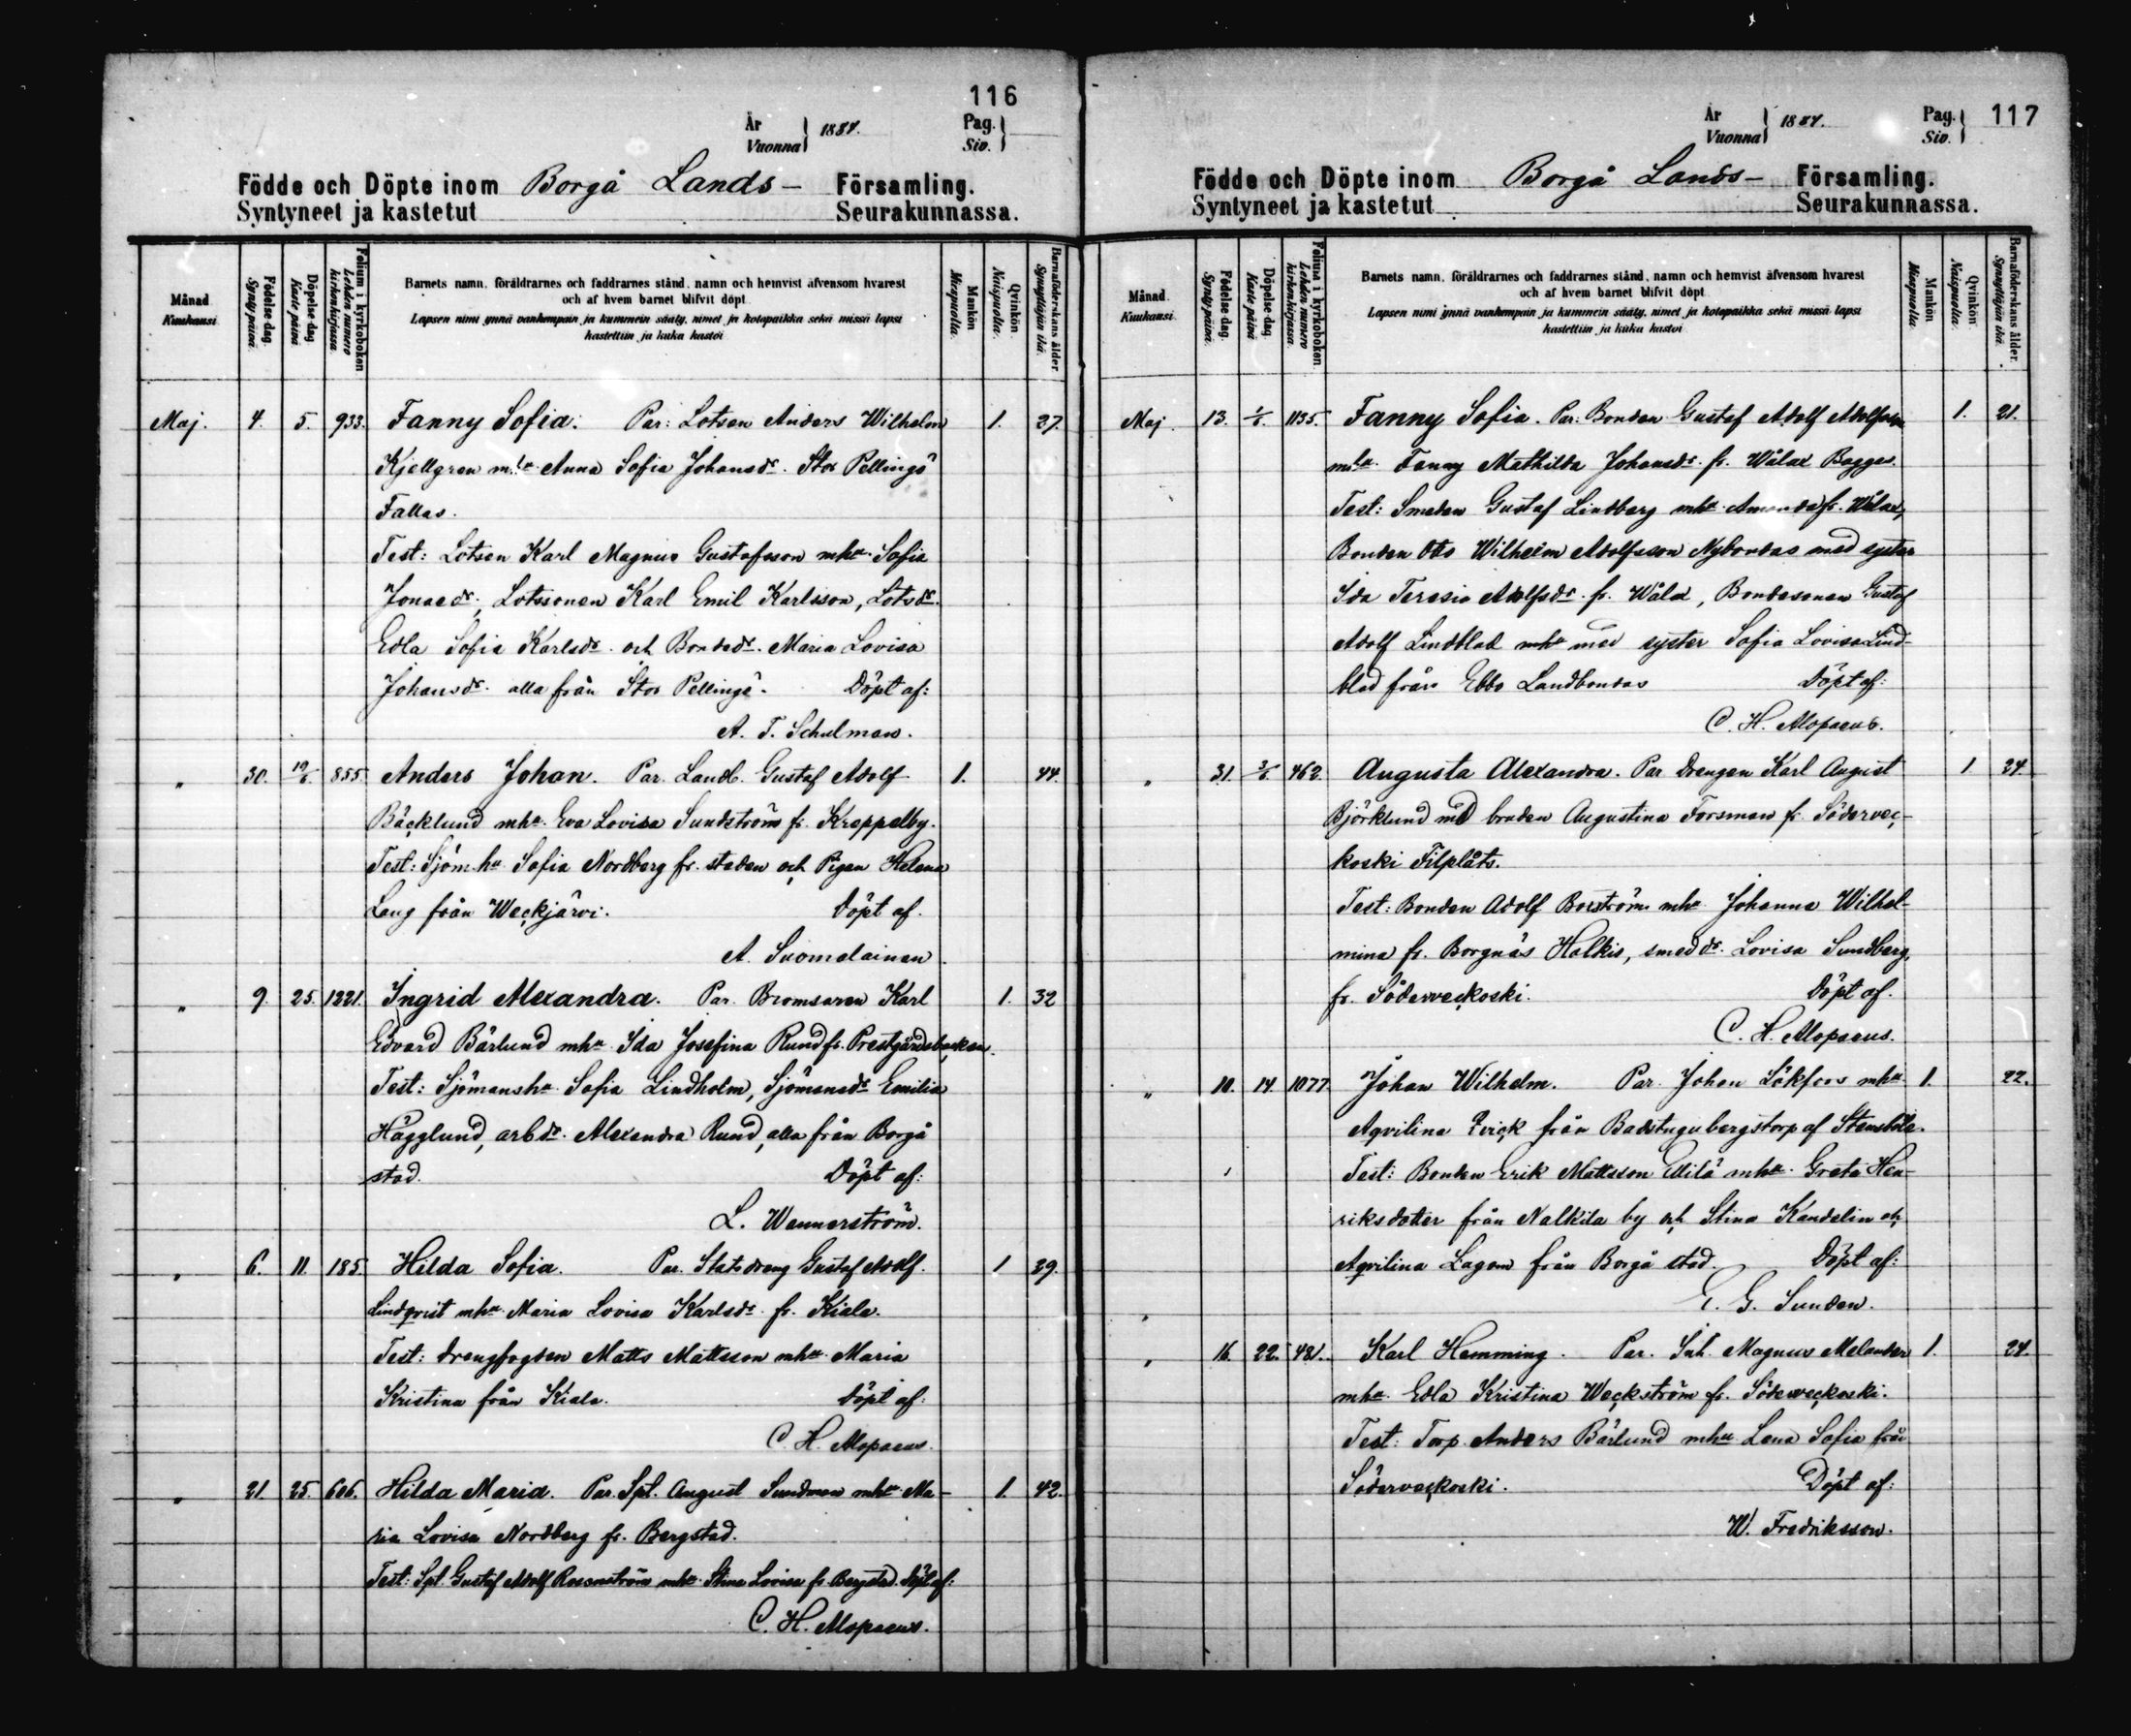 116
År
Vuonna } 1884. Pag.
Siv. }
Födde och Döpte inom Borgå Lands- Församling.
Syntyneet ja kastetut Seurakunnassa.
Månad
Kuukausi
Födelse dag.
Synty päivä.
Döpelse dag
Kaste päivä
Folium i kyrkoboken
Lehden numero kirkonkirjassa
Barnets namn, föräldrarnes och faddrarnes stånd, namn och hemvist äfvensom hvarest
och af hvem barnet blifvit döpt.
Lapsen nimi ynnä vanhempain ja kummein sääty, nimet ja kotopaikka sekä missä lapsi
kastettiin ja kuka kastoi
Mankön
Miespuolta.
Qvinkön
Naispuolta.
Barnaföderskans ålder
Synnyttäjän ikä.
Maj. 4. 5. 933. Fanny Sofia. Par: Lotsen Anders Wilhelm 1. 27.
Kjellgren m.h. Anna Sofia Johansdr. Stor Pellinge
Fallas.
Test: Lotsen Karl Magnus Gustafsson mha Sofia
Jonaedr., Lotssonen Karl Emil Karlsson, Lotsdr.
Edla Sofia Karlsdr. och Bondedr. Maria Lovisa
Johansdr. alla från Stor Pellinge. Döpt af:
A. T. Schulman.
" 30. 19/6. 855. Anders Johan. Par. Landb. Gustaf Adolf 1. 44.
Bäcklund mha. Eva Lovisa Sundström fr. Kroppelby.
Test: Sjöm.ha Sofia Nordberg fr. staden och Pigan Helena
Lang från Weckjärvi. Döpt af.
A. Suomalainen
" 9. 25. 1221. Ingrid Alexandra. Par. Bromsaren Karl 1. 32
Edvard Bärlund mha Ida Josefina Rund fr. Prestgårdsbacken.
Test: Sjömansha Sofia Lindholm, Sjömansdr Emilia
Hägglund, arb.dr. Alexandra Rund, alla från Borgå
stad. Döpt af:
L. Wennerström.
" 6. 11. 185. Hilda Sofia. Par. Statsdreng Gustaf Adolf 1 29.
Lindqvist mha Maria Lovisa Karlsdr. fr. Kiala.
Test: drengfogden Matts Mattsson mha Maria
Kristina från Kiala. Döpt af:
C. H. Alopaeus.
" 21. 25. 606. Hilda Maria. Par. Spt. August Sundman mha Ma- 1. 42.
ria Lovisa Nordberg fr. Bergstad.
Test: Spt. Gustaf Adolf Rosenström mha Stina Lovisa fr Bergstad. Döpt af:
C. H. Alopaeus.
År
Vuonna } 1884. Pag.
Siv. } 117
Födde och Döpte inom Borgå Lands- Församling.
Syntyneet ja kastetut Seurakunnassa.
Månad.
Kuukausi
Födelse dag.
Synty päivä.
Döpelse dag.
Kaste päivä
Folium i kyrkoboken.
Lehden numero kirkonkirjassa.
Barnets namn, föräldrarnes och faddrarnes stånd, namn och hemvist äfvensom hvarest
och af hvem barnet blifvit döpt.
Lapsen nimi ynnä vanhempain ja kummein sääty, nimet ja kotopaikka sekä missä lapsi
kastettiin ja kuka kastoi
Mankön
Miespuolta
Qvinkön
Naispuolta.
Barnaföderskans ålder.
Synnyttäjän ikä.
Maj. 13. 1/6. 1135. Fanny Sofia. Par: Bonden Gustaf Adolf Adolfsson 1. 21.
mha. Fanny Mathilda Johansdr. fr. Wålax Bagges.
Test: Smeden Gustaf Lindberg mha Amanda fr. Wålax,
Bonden Otto Wilhelm Adolfsson Nybondas med syster
Ida Teresia Adolfsdr. fr. Wålax, Bondesonen Gustaf
Adolf Lindblad mha med syster Sofia Lovisa Lind-
blad från Ebbo Landbondas Döpt af:
C. H. Alopaeus.
" 31. 3/6 462. Augusta Alexandra. Par Drengen Karl August 1 24.
Björklund md bruden Augustina Forsman fr Södervec-
koski Filplåts.
Test: Bonden Adolf Borström mha Johanna Wilhel-
mina fr. Borgnäs Halkis, smeddr. Lovisa Sundberg,
fr. Söderveckoski. Döpt af.
C. H. Alopaeus.
" 10. 14. 1077 Johan Wilhelm. Par. Johan Lökfors mha 1. 22.
Aqvilina Qvick från Badstugubergstorp af Stensböle.
Test: Bonden Erik Mattsson mha Greta Hen-
riksdotter från Nalkila by och Stina Kandelin och
Aqvilina Lagom från Borgå stad. Döpt af:
E. G. Sunden.
" 16. 22. 421. Karl Hemming. Par. Inh. Magnus Melander 1. 24.
mha Edla Kristina Weckström fr. Söderveckoski.
Test: Torp. Anders Bärlund mha Lena Sofia från
Söderveckoski. Döpt af:
W. Fredriksson.